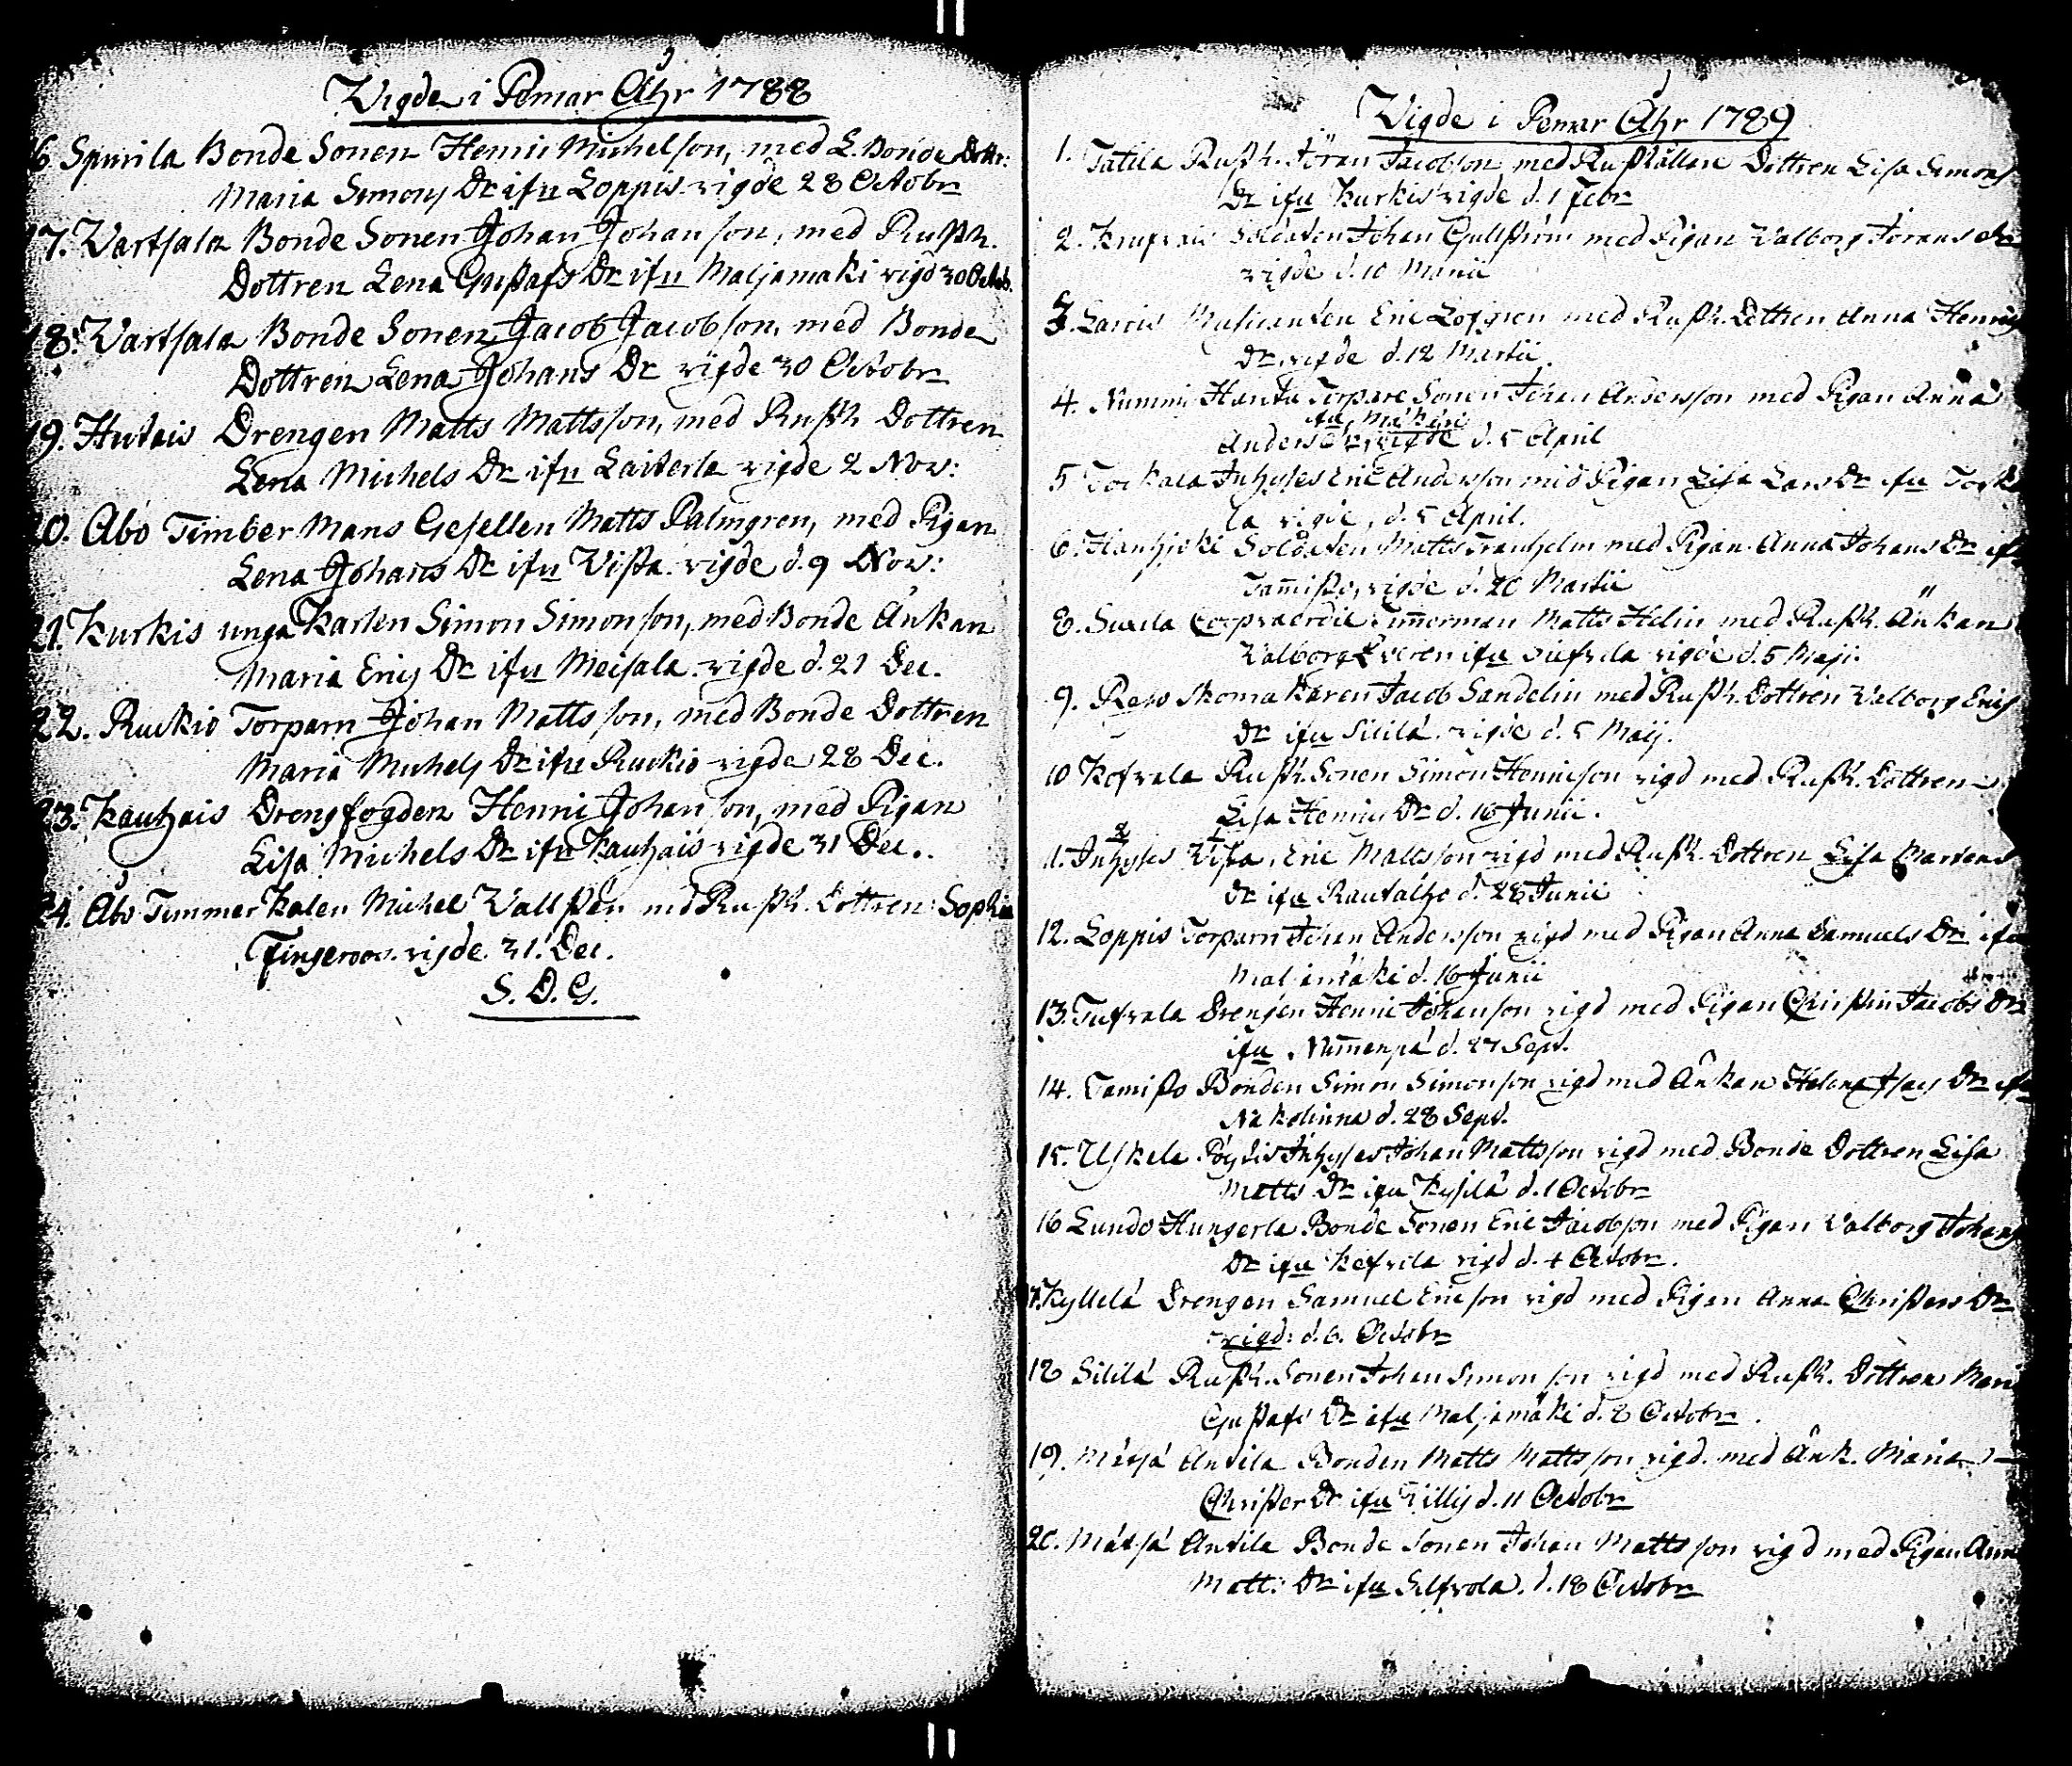 Vigde i Pemar Åhr 1788
6. Spurila Bonde Sonen Henric Michelson, med L. Bonde Dottr:
Maria Simons Dr ifrn Loppis vigde 28 Octobr
17. Vartsala Bonde Sonen Johan Johanson, med Rusth.
Dottren Lena Gustafs Dr ifrn Maljamaki vigd 30 Octob.
18. Vartsala Bonde Sonen Jacob Jacobson, med Bonde
Dottren Lena Johans Dr vigde 30 Octobr
19. Hutais Drengen Matts Mattsson, med Rusth Dottren
Lena Michels Dr ifrn Laiterla vigde 2 Nov:
20. Åbo Timber Mans Gesellen Matts Palmgren, med Pigan
Lena Johans Dr ifrn Vista vigde d. 9 Nov:
21. Kurkis unga Karlen Simon Simonson, med Bonde Änkan
Maria Erics Dr ifrn Meisala vigde d. 21 Dec.
22. Ruckio Torparn Johan Mattsson, med Bonde Dottren
Maria Michels Dr ifrn Ruckio vigde 28 Dec.
23. Kauhais Drengfogden Henric Johanson, med Pigan
Lisa Michels Dr ifrn Kauhais vigde 31 Dec.
24. Åbo Timmer Kalen Michel Vallsten med Rusth. Dottren Sophia
Fingeroos vigde 31. Dec.
S. D. G.
Vigde i Pemar Åhr 1789
1. Tatila Rusth. Jöran Jacobson med Rusthållare Dottren Lisa Simons
Dr ifrn Kurkis vigde d. 1 Febr
2. Soldaten Johan Gullström med Pigan Valborg Jörans dr
vigde d. 10 Martii
3. Musicanten Eric Lofgren med Rusth. Dottren Anna Henrics
Dr vigde d. 12 Martii.
4. Nummi Torpare Sonen Johan Andersson med Pigan Anna
Anders Dr, vigde d. 5 April
5 Tockala Inhyses Eric Andersson med Pigan Lisa Lars Dr ifrn Tocka
la vigde, d. 5 April.
6. Soldaten Matts med Pigan Anna Johans Dr ifrn
Tamisto, vigde d. 20 Martii
8. Timmerman Matts Helin med Rusth. Änkan
Valborg ifrn vigde d. 5 Maji.
9. Reso Skomakaren Jacob Sandelin med Rusth. Dottren Valborg Erics
Dr ifrn Sililä vigde d. 5 Maij.
10 Kefvala Rusth. Sonen Simon Henricson vigd med Rusth. Dottren
Lisa Henrics Dr d. 16 Junii.
11. Inhyses Vista, Eric Mattsson vigd med Rusth. Dottren Lisa Martens
Dr ifrn d. 28 Junii
12. Loppis Torparn Johan Andersson vigd med Pigan Anna Samuels Dr ifrn
d. 16 Junii
13. Tufvala Drengen Henric Johanson vigd med Pigan Christin Jacobs Dr
ifrn Nummenpä d. 27 Sept.
14. Tamisto Bonden Simon Simonson vigd med Änkan Helena Isacs Dr ifrn
Nakolinna d. 28 Sept.
15. Uskela Inhyses Johan Mattsson vigd med Bonde Dottren Lisa
Matts Dr ifrn d. 1 Octobr
16 Lundo Hungerla Bonde Sonen Eric Jacobson med Pigan Valborg Johans
Dr ifrn Kefvala vigd d. 4 Octobr.
17. Kyllelä Drengen Samuel Ericson vigd med Pigan Anna Christers Dr
vigd: d. 6. Octobr
18 Sililä Rusth. Sonen Johan Simonson vigd med Rusth. Dottren Mari
Gustafs Dr ifrn Maljamäki d. 8 Octobr.
19. Märjä Antila Bonden Matts Mattsson vigd. med Änk. Maria
Christer Dr ifrn d. 11 Octobr
20. Antila Bonde Sonen Johan Mattsson vigd med Pigan Anna
Matts Dr ifrn d. 18 Octobr